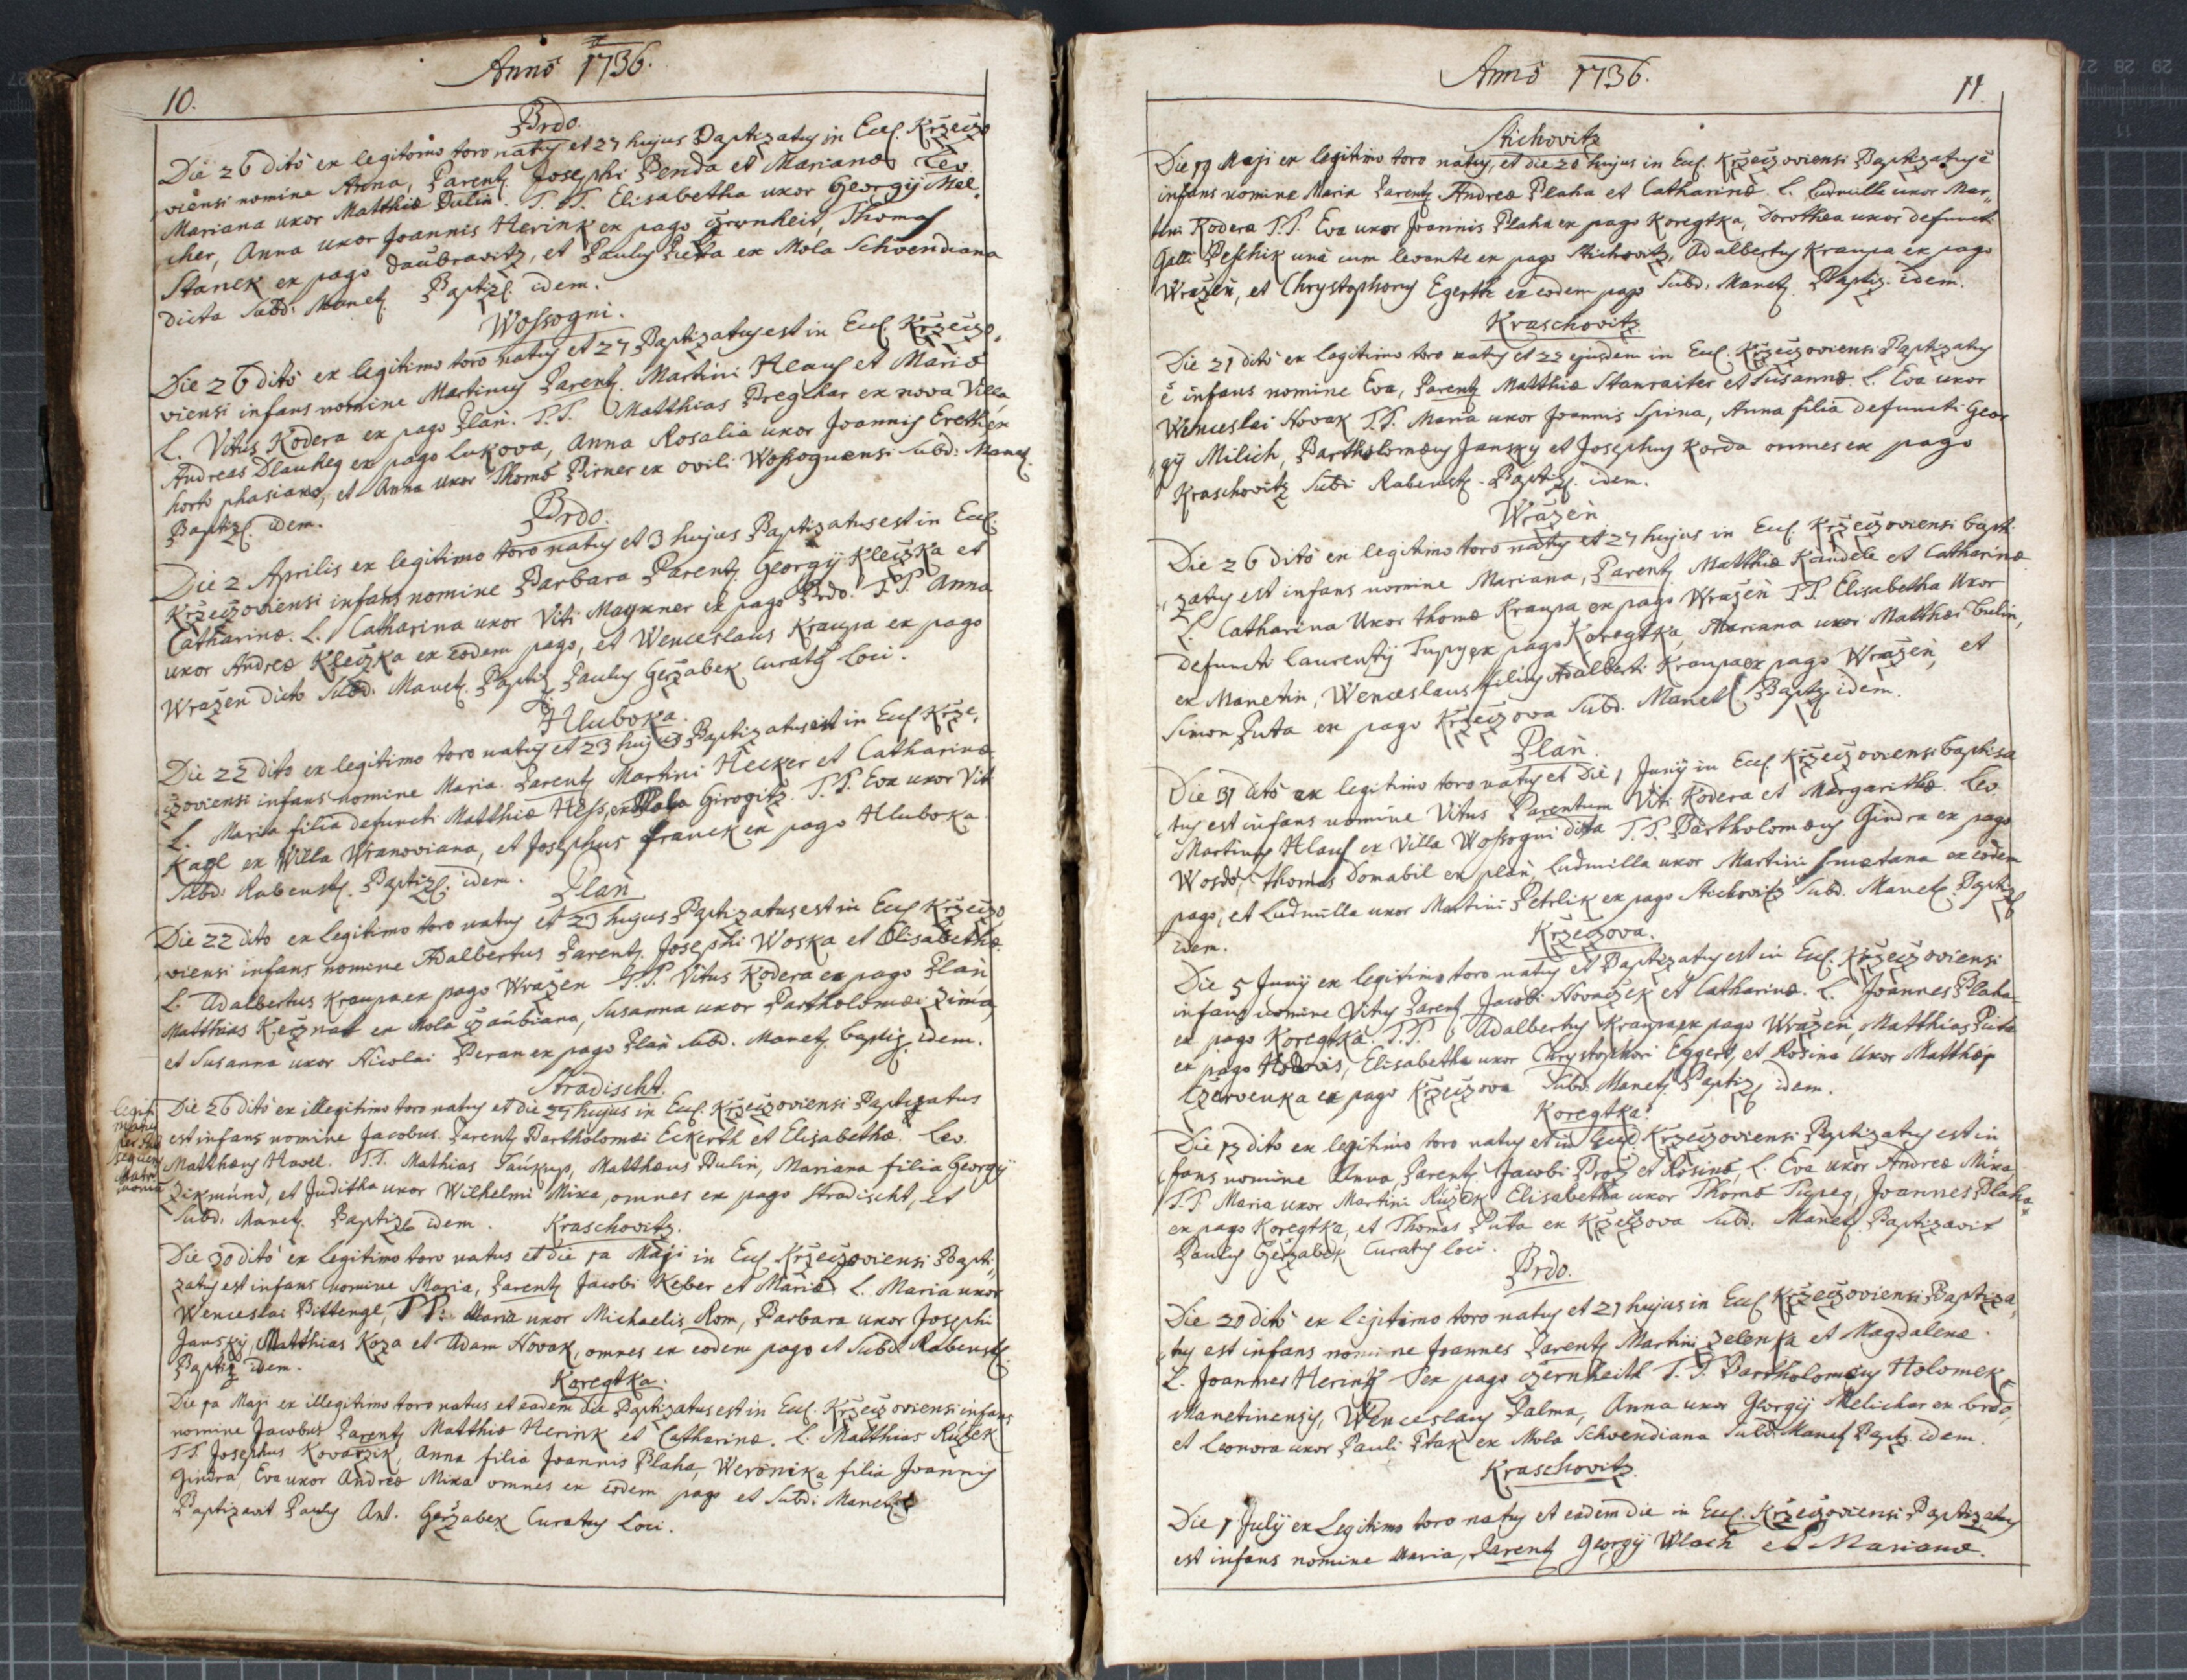 Anno 1736.
10.
Brdo.
Die 26 dito ex legitimo toro natus et 27 hujus Baptizatus in Eccl. Krzeczo
viensi nomine Anna, Parent. Josephi Benda et Marianæ Lev.
Mariana uxor Matthiæ Bulin. T.T. Elisabetha uxor Georgij Mel
cher, Anna uxor Joannis Herink ex pago Thomas
Stanek ex pago Daubrawitz, et Paulus ex Mola Schvendiana
dicta Subd. Manet. Baptiz. idem.
Wossogni.
Die 26 dito ex legitimo toro natus et 27 Baptizatus est in Eccl. Krzeczo,
viensi infans nomine Martinus Parent. Martini Hlaus et Mariæ
L. Vitus Kodera ex pago Plan. T.T. Matthias Pregchar ex nova Villa
Andreas Dlauheg ex pago Lukova, Anna Rosalia uxor Joannis Ereth ex
horto phasiano, et Anna uxor Thomæ Pirner ex ovili Wossognensi Subd. Manet.
Baptiz. idem.
Brdo.
Die 2 Aprilis ex legitimo toro natus et 3 hujus Baptizatus est in Eccl.
Krzeczoviensi infans nomine Barbara Parent. Georgij Kleczka et
Catharinæ. L. Catharina uxor Viti Mayxner ex pago Brdo. T.T. Anna
uxor Andreæ Kleczka ex eodem pago, et Wenceslaus Kraupa ex pago
Wrazen dicto Subd. Manet. Baptiz. Paulus Gerzabek Curatus Loci.
Hluboka.
Die 22 dito ex legitimo toro natus et 23 hujus Baptizatus est in Eccl. Krze,
czoviensi infans nomine Maria Parent. Martini Hecker et Catharinæ
L. Maria filia defuncti Matthiæ Hess, ex Mola Girogitz. T.T. Eva uxor Viti
Kagl ex Villa Wranoviana, et Josephus Franek ex pago Hluboka
Subd. Rabenst. Baptiz. idem.
Plan
Die 22 dito ex legitimo toro natus et 23 hujus Baptizatus est in Eccl. Krzeczo
viensi infans nomine Adalbertus Parent. Josephi Woska et Elisabethæ.
L. Adalbertus Kraupa ex pago Wrazen T.T. Vitus Kodera ex pago Plan,
Matthias ex Mola czaubiana, Susanna uxor Partholomæi Zima,
et Susanna uxor Nicolai Beran ex pago Plan Subd. Manet. Baptiz. idem.
Stradischt.
legiti
matus
per sub
sequens
Matri
monium
Die 26 dito ex illegitimo toro natus et die 27 hujus in Eccl. Krzeczoviensi Baptizatus
est infans nomine Jacobus. Parent. Bartholomæi Eckerth et Elisabethæ. Lev.
Matthæus Havel. T.T. Mathias Taukup, Matthæus Bulin, Mariana filia Georgij
Zikmund, et Juditha uxor Wilhelmi Mixa, omnes ex pago Stradischt, et
Subd. Manet. Baptiz. idem.
Kraschovitz.
Die 30 dito ex legitimo toro natus et die 1a Maji in Eccl. Krzeczoviensi Bapti,,
zatus est infans nomine Maria, Parent. Jacobi Keber et Mariæ. L. Maria uxor
Wenceslai Bittengl, T.T. Maria uxor Michaelis Rom, Barbara uxor Josephi
Jansky, Matthias Koza et Adam Novak, omnes ex eodem pago et Subd. Rabenst.
Baptiz. idem.
Koregtka.
Die 1a Maji ex illegitimo toro natus et eadem die Baptizatus est in Eccl. Krzeczoviensi infans
nomine Jacobus Parent. Matthiæ Herink et Catharinæ. L. Matthias Ružek
T.T. Josephus Kovarzik, Anna filia Joannis Blaha, Weronika filia Joannis
Gindra, Eva uxor Andreæ Mixa omnes ex eodem pago et Subd. Manet.
Baptizavit Paulus Ant. Gerzabek Curatus Loci.
Anno 1736.
11.
Stichovitz
Die 19 Maji ex legitimo toro natus, et die 20 hujus in Eccl. Krzeczoviensi Baptizatus ē
infans nomine Maria Parent. Andreæ Blaha et Catharinæ. L. Ludmilla uxor Mar,,
tini Kodera T.T. Eva uxor Joannis Blaha ex pago Koregtka, Dorothea uxor defuncti
Galli Peschik una cum levante ex pago Stichovitz, Adalbertus Kraupa ex pago
Wrazen, et Chrystophorus Egerth ex eodem pago Subd. Manet. Baptiz. idem.
Kraschovitz.
Die 21 dito ex legitimo toro natus et 22 ejusdem in Eccl. Krzeczoviensi Baptizatus
ē infans nomine Eva, Parent. Matthiæ Stanraiter et Susannæ. L. Eva uxor
Wenceslai Novak T.T. Maria uxor Joannis Spina, Anna filia defuncti Geor
gij Milich, Bartholomæus Jansky et Josephus Korda omnes ex pago
Kraschovitz Subd. Rabenst. Baptiz. idem.
Wrazen
Die 26 dito ex legitimo toro natus et 27 hujus in Eccl. Krzeczoviensi bapti
zatus est infans nomine Mariana, Parent. Matthiæ Kandele et Catharinæ
L. Catharina Uxor Thomæ Kraupa ex pago Wrazen T.T. Elisabetha Uxor
defuncti Laurentij Tupy ex pago Koregtka, Marianna uxor Matthæi Bulin,
ex Manetin, Wenceslaus filius Adalberti Kraupa ex pago Wrazen, et
Simon Puta ex pago Krzeczova Subd. Manet. Baptiz. idem.
Plan.
Die 31 dito ex legitimo toro natus et Die 1 Junij in Eccl. Krzeczoviensi baptiza
tus est infans nomine Vitus Parentum Viti Kodera et Margarithæ. Lev.
Martinus Hlaus ex Villa Wossogni dicta T.T. Bartholomæus Gindra ex pago
Thomas Domabil ex plan, Ludmilla uxor Martini Smetana ex eodem
pago, et Ludmilla uxor Martini Petrlik ex pago Stichovitz Subd. Manet. Baptiz.
idem.
Krzeczova.
Die 5 Junij ex legitimo toro natus et Baptizatus est in Eccl. Krzeczoviensi
infans nomine Vitus Parent. Jacobi Novaczek et Catharinæ. L. Joannes Blaha
ex pago Koregtka. T.T. Adalbertus Kraupa ex pago Wrazen, Matthias Puta
ex pago Elisabetha uxor Chrystophori Eggert, et Rosina Uxor Matthæi
Czervenka ex pago Krzeczova Subd. Manet. Baptiz. idem.
Koregtka.
Die 13 dito ex legitimo toro natus et in Eccl. Krzeczoviensi Baptizatus est in
fans nomine Anna, Parent. Jacobi et Rosinæ, L. Eva uxor Andreæ Mixa
T.T. Maria uxor Martini Ružek Elisabetha uxor Thomæ Tupeg, Joannes Blaha
ex pago Koregtka, et Thomas Puta ex Krzeczova Subd. Manet. Baptizavit
Paulus Gerzabek Curatus loci.
Brdo.
Die 20 dito ex legitimo toro natus et 21 hujus in Eccl. Krzeczoviensi Baptiza,
tus est infans nomine Joannes Parent. Martini Zelenka et Magdalenæ.
L. Joannes Herink ex pago T.T. Bartholomæus Holomek
Manetinensis, Wenceslaus Palma, Anna uxor Georgij Melichar ex brdo,
et Leonora uxor Pauli Ptak ex Mola Schvendiana Subd. Manet. Baptiz. idem.
Kraschovitz.
Die 1 Julij ex Legitimo toro natus et eadem die in Eccl. Krzeczoviensi Baptizatus
est infans nomine Maria, Parent. Georgij Wlach et Marianæ.